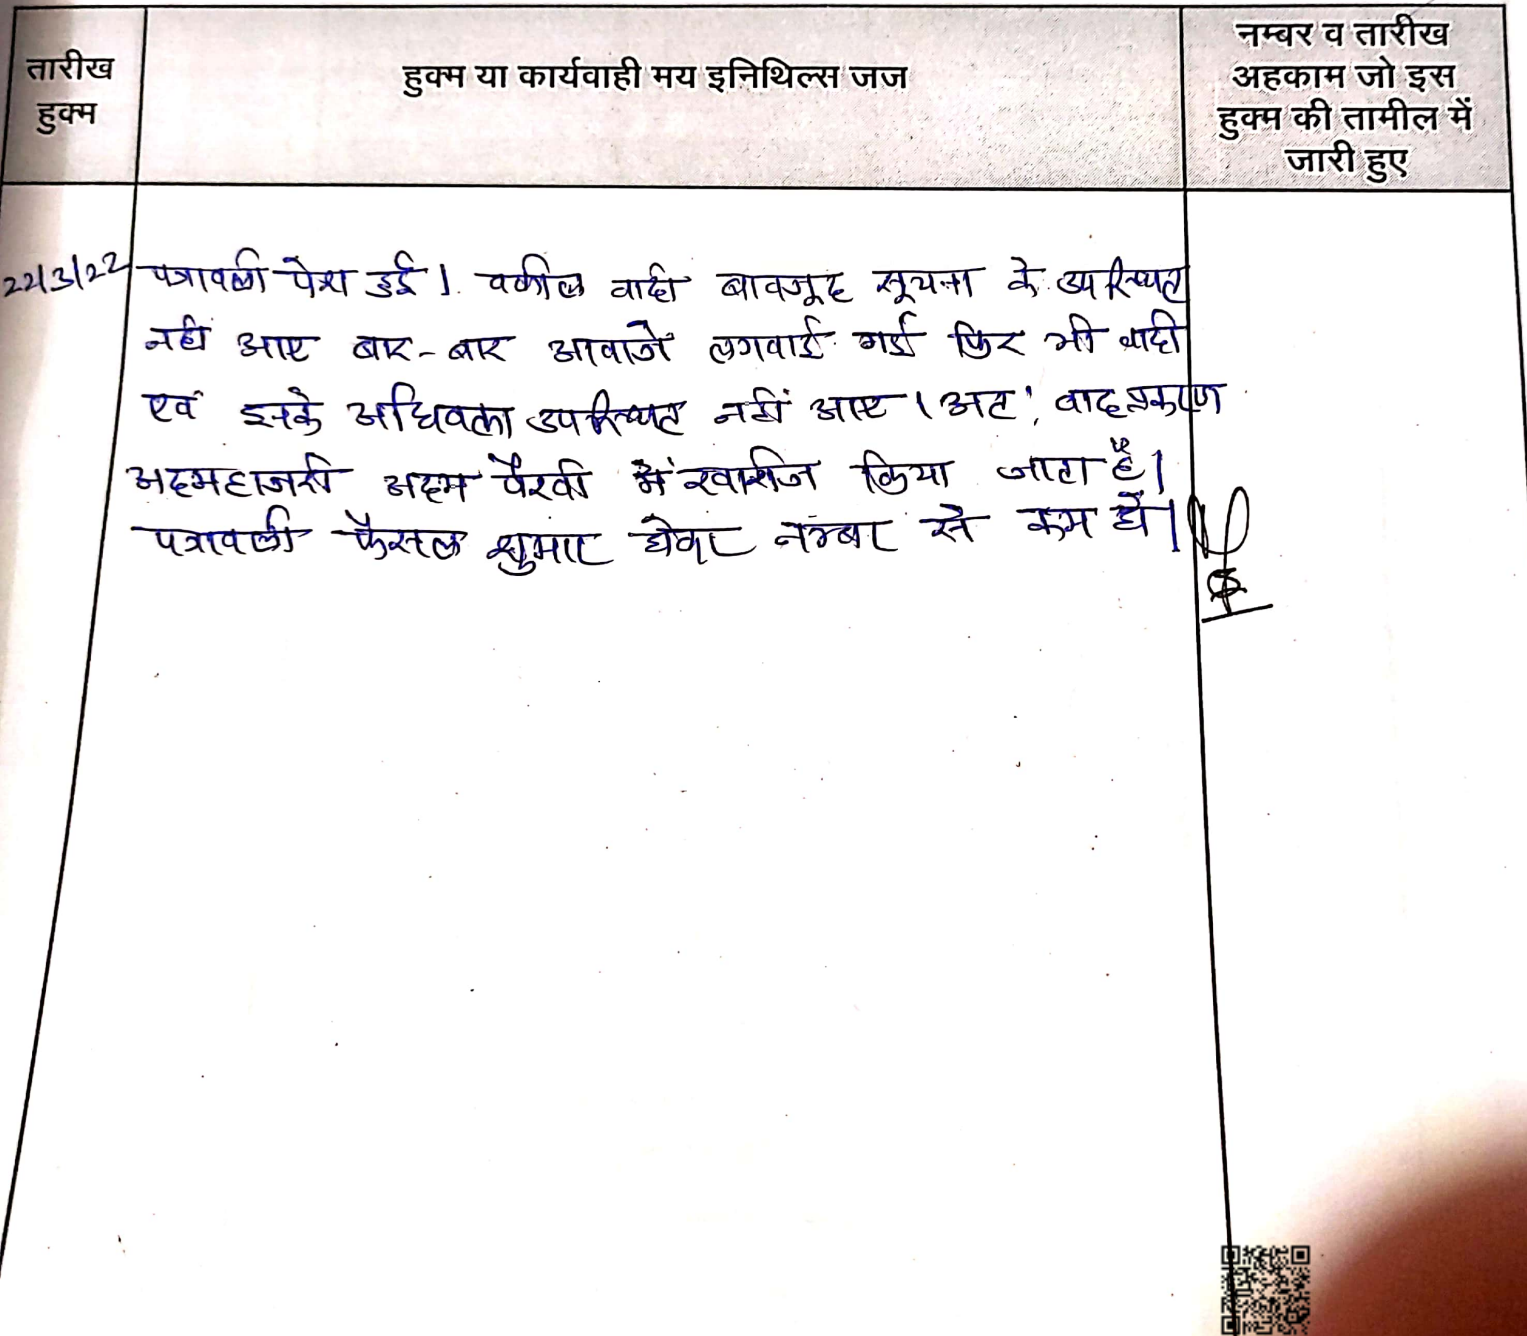 तारीख
हुक्म
हुक्म या कार्यवाही मय इनिथिल्स जज
नम्बर व तारीख
अहकाम जो इस
हुक्म की तामील में
जारी हुए
22/3/22 पत्रावली पेश हुई। वकील वादी बावजूद सूचना के उपस्थित
नहीं आए बार-बार आवाजे लगवाई गई फिर भी वादी
एवं इनके अधिवक्ता उपस्थित नहीं आए। अतः वाद प्रकरण
अदमहाजरी अदम पैरवी में खारीज किया जाता है।
पत्रावली फैसल शुमार होकर नम्बर से कम हो।